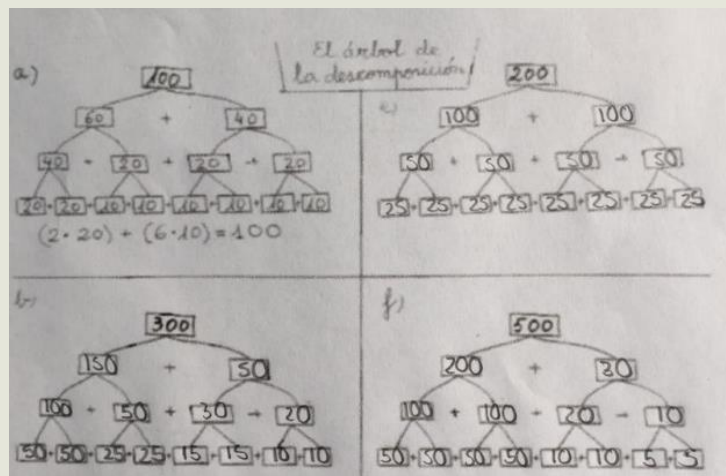 El árbol de
la descomposición
a)
100
60 + 40
40 + 20 + 20 + 20
20+20+10+10+10+10+10+10
(2·20) + (6·10) = 100
200
100 + 100
50 + 50 + 50 + 50
25+25+25+25+25+25+25+25
b)
300
150 + 50
100 + 50 + 30 + 20
50+50+25+25+15+15+10+10
f)
500
200 + 30
100 + 100 + 20 + 10
50+50+50+50+10+10+5+5